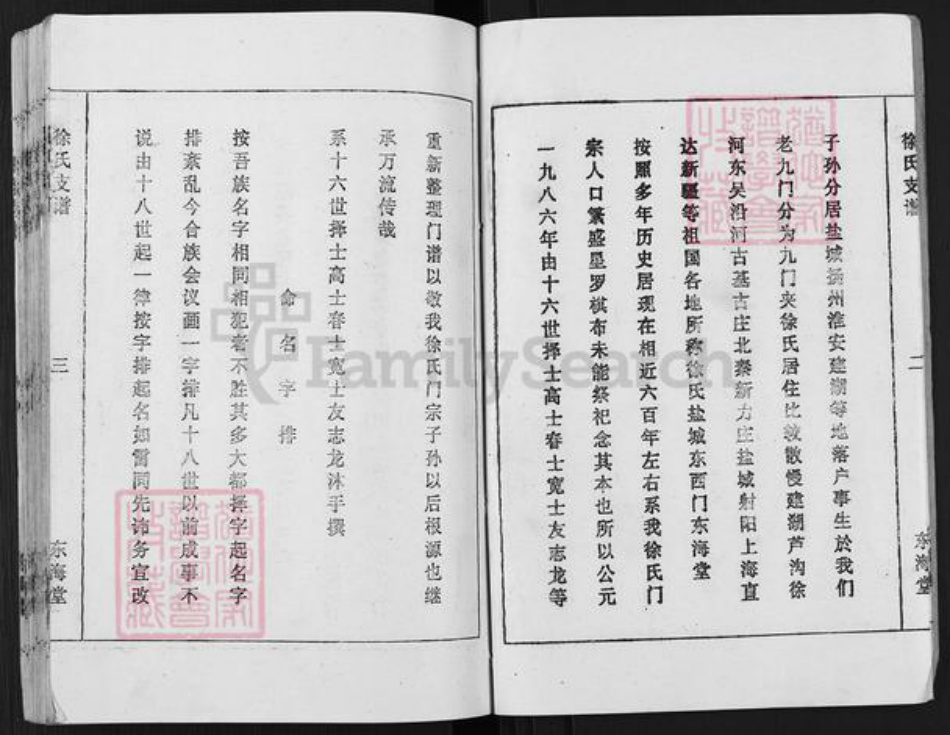 徐氏支谱
二
东海堂
子孙分居盐城扬州淮安建湖等地落户事生於我们
老九门分为九门夹徐氏居住比较散慢建湖芦沟徐
河东吴沿河古基古庄北秦新力庄盐城射阳上海直
达新疆等祖国各地所称徐氏盐城东西门东海堂
按照多年历史居现在相近六百年左右系我徐氏门
宗人口繁盛星罗棋布未能祭祀念其本也所以公元
一九八六年由十六世择士高士春士宽士友志龙等
重新整理门谱以敬我徐氏门宗子孙以后根源也继
承万流传哉
系十六世择士高士春士宽士友志龙沐手撰
命名字排
按吾族名字相同相犯者不胜其多大都择字起名字
排紊乱今合族会议画一字排凡十八世以前成事不
说由十八世起一律按字排起名如雷同先讳务宜改
徐氏支谱
三
东海堂
FamilySearch